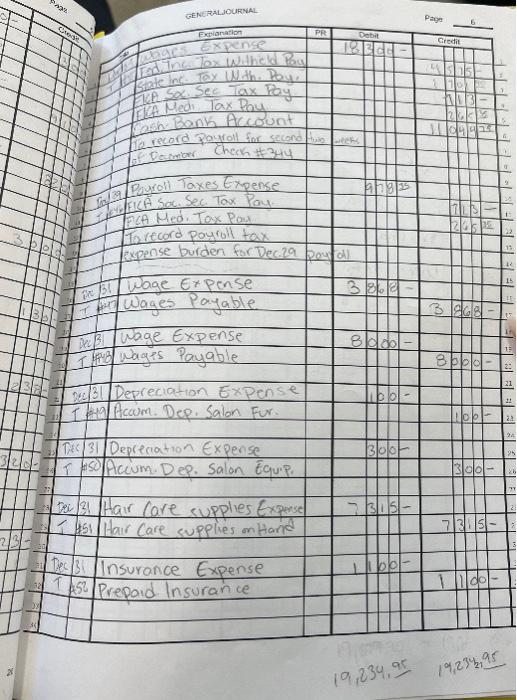 GENERAL JOURNAL
Page 6
Explanation PR Debit Credit
Wages Expense 18300-
Fed Inc. Tax Withheld Pay 4575-
State Inc. Tax With. Pay.
FICA Soc. Sec Tax Pay 713-
FICA Medi. Tax Pay 265 35
Cash-Bank Account
To record Payroll for second two weeks
of December Check #344
Dec 29 Payroll Taxes Expense 978 35
FICA Soc. Sec. Tax Pay. 713-
FICA Med. Tax Pay 265 35
To record payroll tax
expense burden for Dec.29 payroll
Dec 31 Wage Expense 3868-
T #47 Wages Payable 3868-
Dec 31 Wage Expense 8000-
T #48 Wages Payable 8000-
Dec 31 Depreciation Expense 100-
T #49 Accum. Dep. Salon Fur. 100-
Dec 31 Depreciation Expense 300-
T #50 Accum. Dep. Salon Equip. 300-
Dec 31 Hair Care supplies Expense 7315-
T #51 Hair Care supplies on Hand 7315-
Dec 31 Insurance Expense 1100-
T #52 Prepaid Insurance 1100-
19,234.95 19,234.95